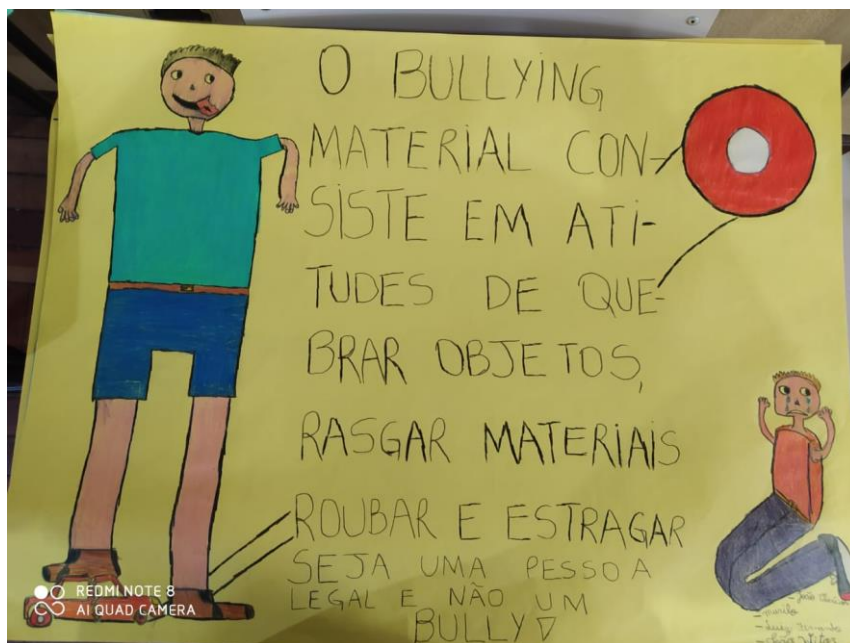 O BULLYING
MATERIAL CON-
SISTE EM ATI-
TUDES DE QUE-
BRAR OBJETOS,
RASGAR MATERIAIS
ROUBAR E ESTRAGAR
SEJA UMA PESSOA
LEGAL E NÃO UM
BULLY
REDMI NOTE 8
AI QUAD CAMERA
- João
- Murilo
- Luiz Fernando